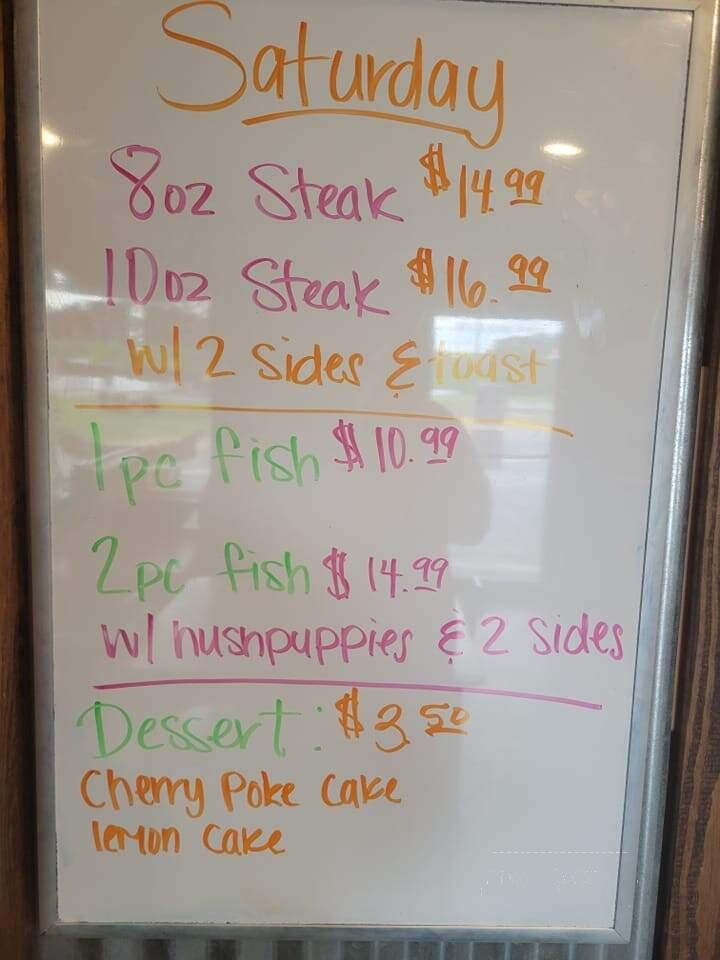 Saturday
8oz Steak $14.99
10oz Steak $16.99
w/ 2 sides & toast
1pc fish $10.99
2pc fish $14.99
w/ hushpuppies & 2 sides
Dessert: $3.50
Cherry Poke Cake
lemon cake